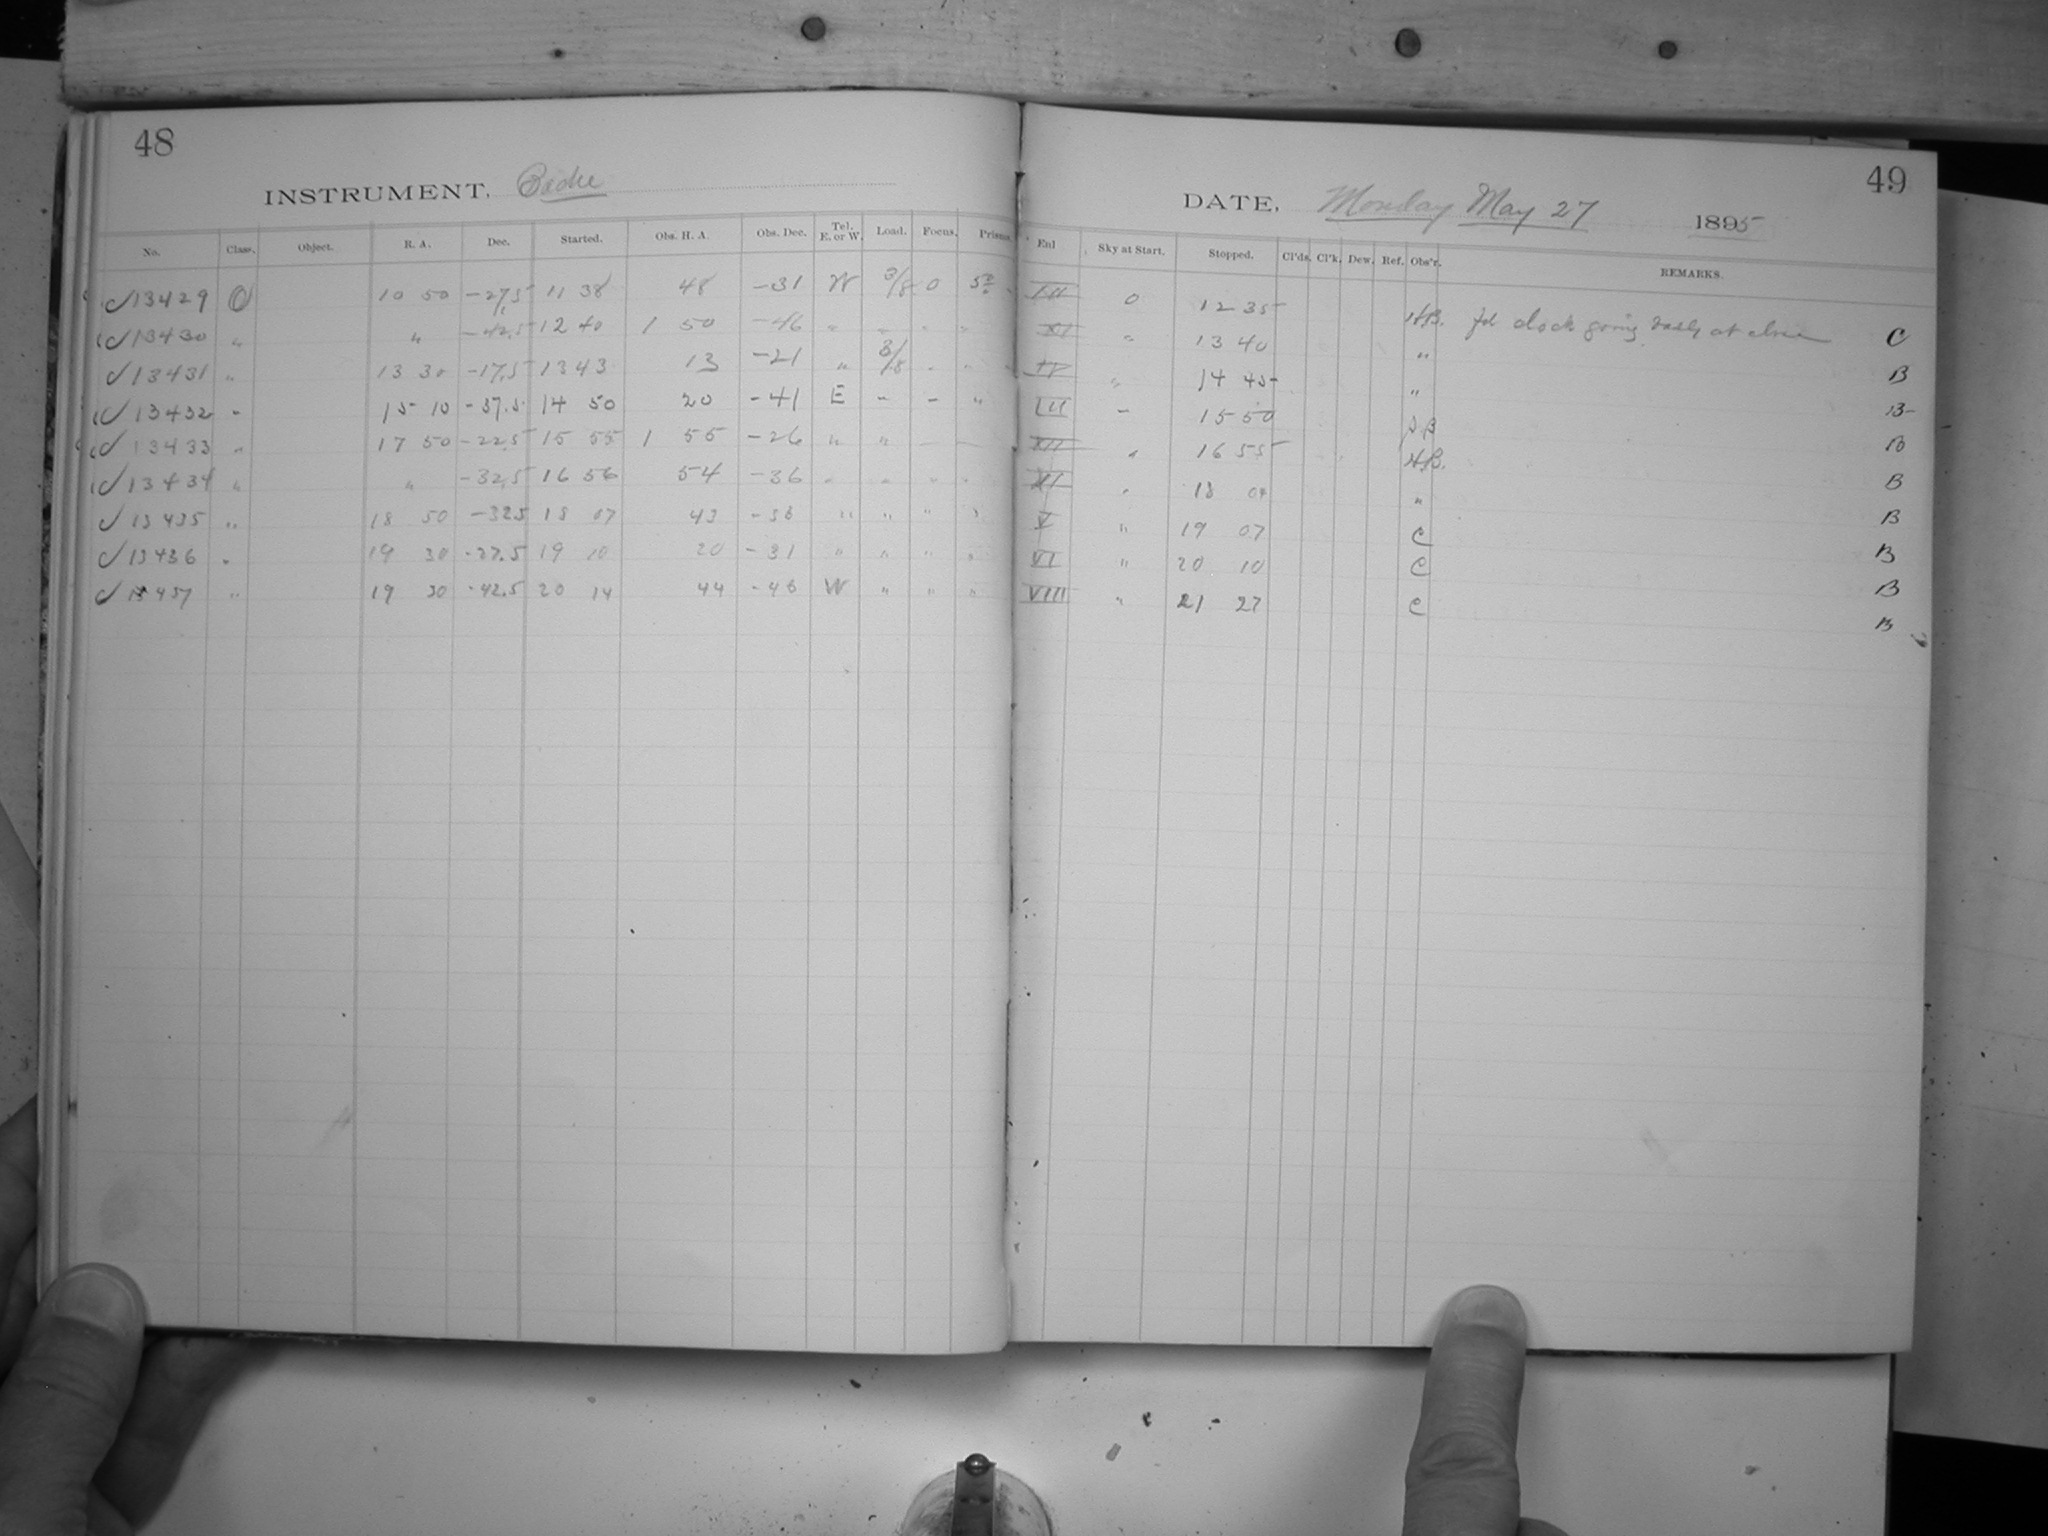 48
INSTRUMENT, Bache
No. Class. Object. R. A. Dec. Started. Obs. H. A. Obs. Dec. Tel. E. or W. Load. Focus. Prisms.
13429 O 10 50 -27.5 11 38 48 -31 W 3/8 0 5°
13430 " " -42.5 12 40 1 50 -46 " " " "
13431 " 13 30 -17.5 13 43 13 -21 " 3/8 " "
13432 " 15 10 -37.5 14 50 20 -41 E " " "
13433 " 17 50 -22.5 15 55 1 55 -26 " "
13434 " " -32.5 16 56 54 -36 " " " "
13435 " 18 50 -32.5 18 07 43 -36 " " " "
13436 " 19 30 -27.5 19 10 20 -31 " " " "
13437 " 19 30 -42.5 20 14 44 -46 W " " "
49
DATE, Monday May 27 1895
Enl Sky at Start. Stopped. Cl'ds. Cl'k. Dew. Ref. Obs'r. REMARKS.
III 0 12 35 clock going at close C
XI " 13 40 " B
IV " 14 45 " B
III " 15 50 B
XII " 16 55 B
XI " 18 04 " B
V " 19 07 C B
VI " 20 10 C B
VIII " 21 27 C B